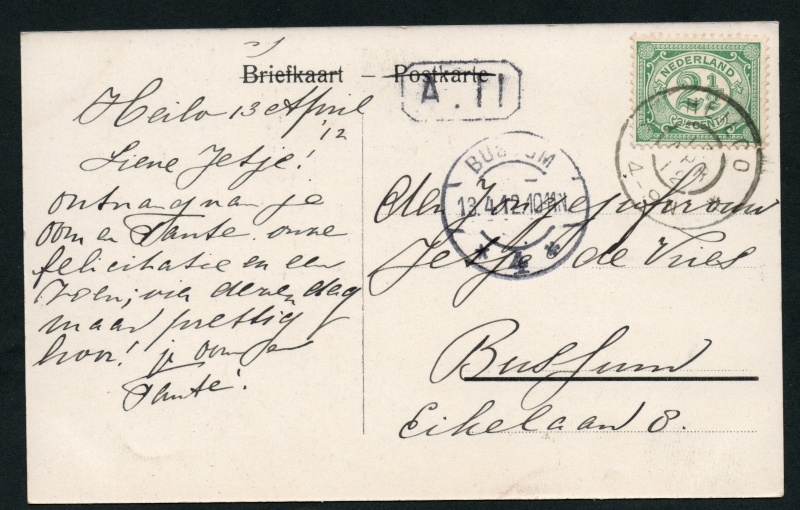 Briefkaart – Postkarte
A. II
NEDERLAND
2½
CENT
HEILO
BUSSUM
13.4.12.10-11N
* 4 *
Heilo 13 April
'12
Lieve Jetje!
ontvang van je
oom en Tante onze
felicitatie en een
zoen; vier deze dag
maar prettig
hoor! je oom en
Tante!
den Jongejufvrouw
Jetje de Vries
Bussum
Eikelaan 8.